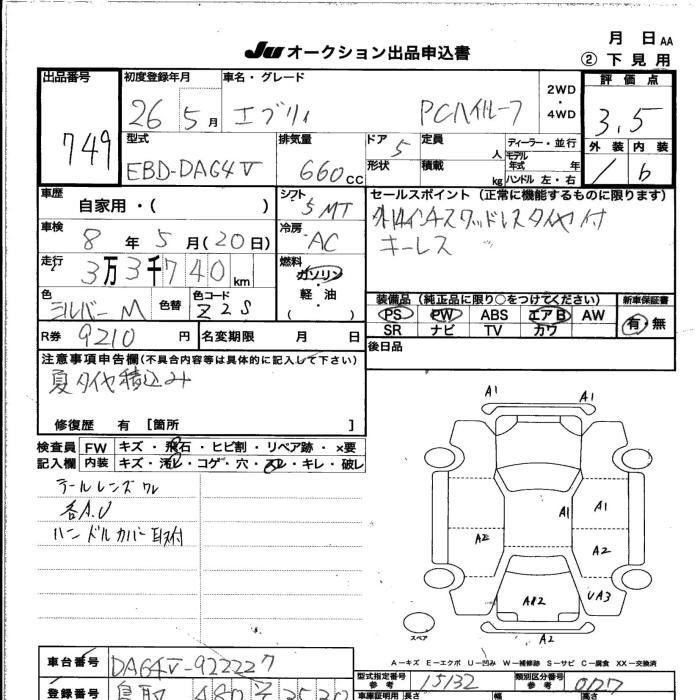 Ju オークション出品申込書
月 日 AA
② 下見用
出品番号
749
初度登録年月
26 5月
車名・グレード
エブリィ PCハイルーフ
2WD
・
4WD
評価点
3.5
外装 内装
/ b
型式
EBD-DA64V
排気量
660cc
ドア 5
形状
定員
人
積載
kg
ディーラー・並行
モデル年式 年
ハンドル 左・右
車歴
自家用・( )
シフト
5MT
セールスポイント(正常に機能するものに限ります)
スタッドレスタイヤ付
キーレス
車検
8年5月(20日)
冷房
AC
走行
3万3千740km
燃料
ガソリン
軽・油
( )
色
シルバーM
色替
色コード
Z2S
装備品(純正品に限り○をつけてください)
PS PW ABS エアB AW
SR ナビ TV カワ
新車保証書
有・無
R券 9210円
名変期限 月 日
後日品
注意事項申告欄(不具合内容等は具体的に記入して下さい)
夏タイヤ積込み
修復歴 有 [箇所 ]
検査員
記入欄
FW キズ・飛石・ヒビ割・リペア跡・×要
内装 キズ・汚レ・コゲ・穴・スレ・キレ・破レ
テールレンズワレ
各A.U
ハンドルカバー取付
A1
A1
A1
A1
A2
A2
UA3
A2
スペア
A2
A-キズ E-エクボ U-凹み W-補修跡 S-サビ C-腐食 XX-交換済
車台番号
DA64V-922227
型式指定番号
参考
15132
類別区分番号
参考
0127
登録番号
鳥取 480
車庫証明用 長さ 幅 高さ